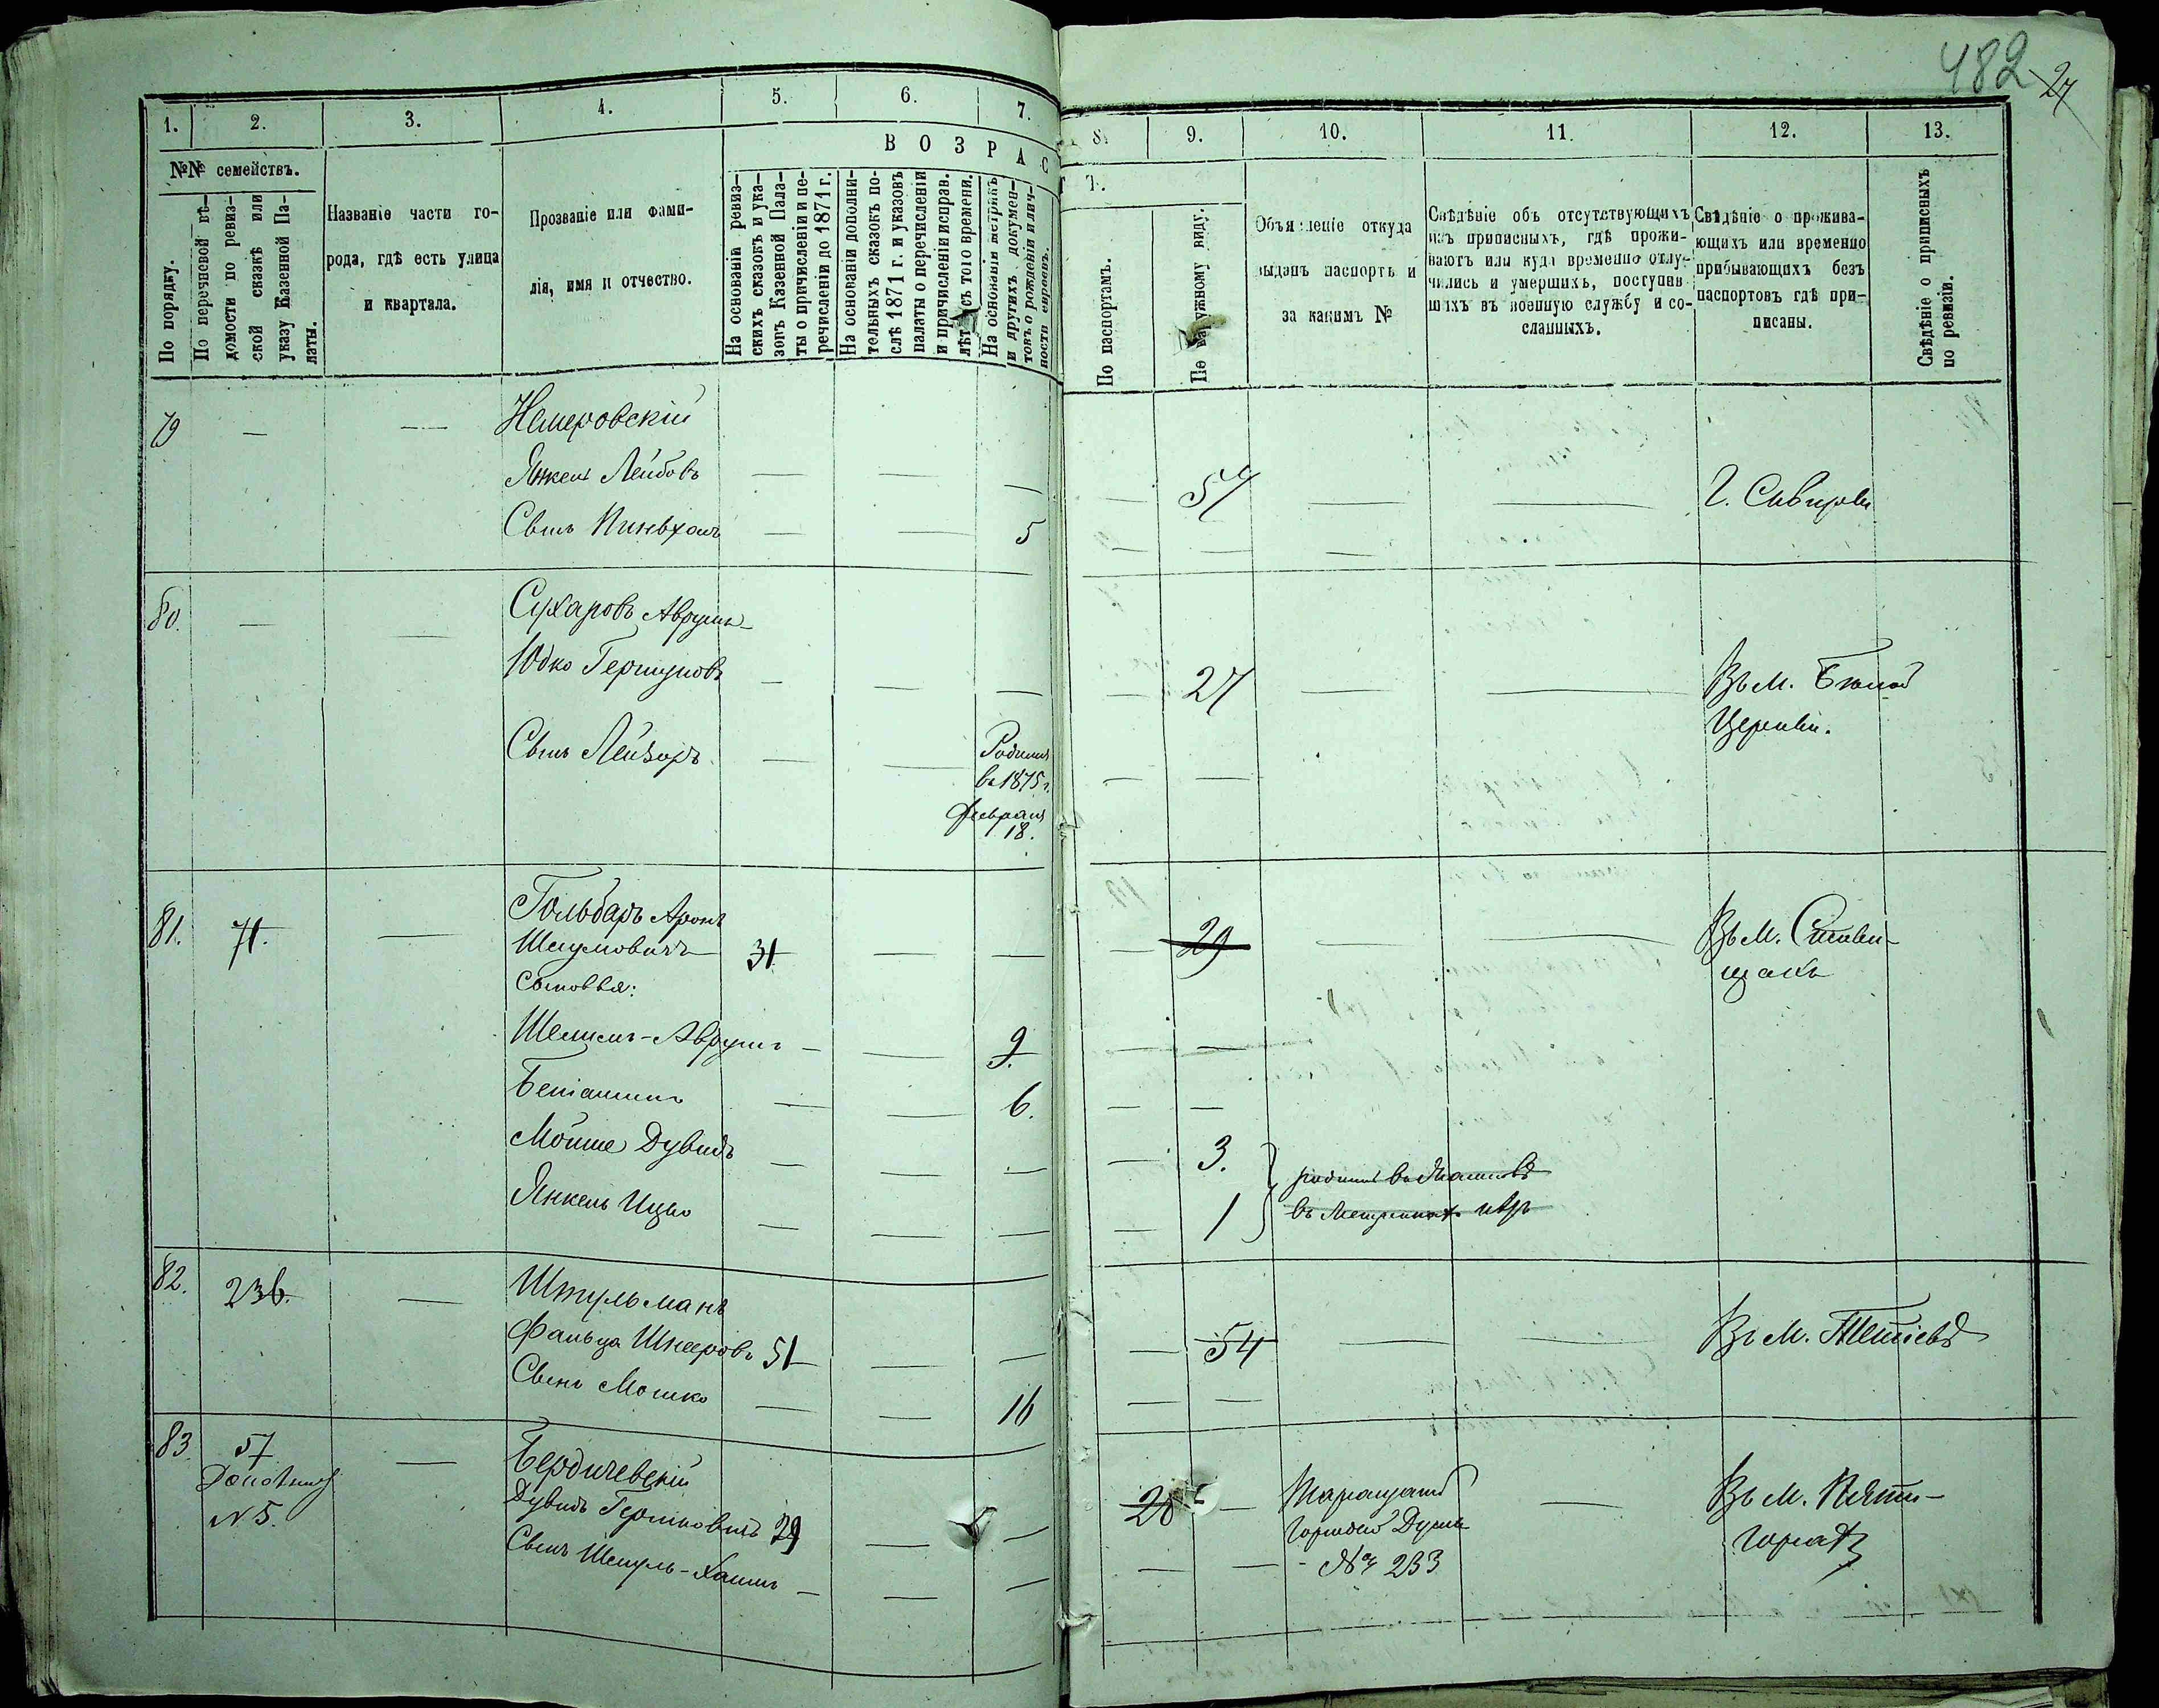 482 27
1. 2. 3. 4. 5. 6. 7. 8. 9. 10. 11. 12. 13.
№№ семействъ.
По порядку.
По перечневой вѣ-
домости по ревиз-
ской сказкѣ или
указу Казенной Па-
латы.
Названіе части го-
рода, гдѣ есть улица
и квартала.
Прозваніе или фами-
лія, имя и отчество.
ВОЗРАСТ.
На основаніи ревиз-
скихъ сказокъ и ука-
зовъ Казенной Пала-
ты о причисленіи и пе-
речисленіи до 1871 г.
На основаніи дополни-
тельныхъ сказокъ по-
слѣ 1871 г. и указовъ
палаты о перечисленіи
и причисленіи исправ.
лѣтъ съ того времени.
На основаніи метрикъ
и другихъ докумен-
товъ о рожденіи и лич-
ности евреевъ.
По паспортамъ.
По наружному виду.
Объявленіе откуда
выданъ паспортъ и
за какимъ №
Свѣдѣніе объ отсутствующихъ
изъ приписныхъ, гдѣ прожи-
ваютъ или куда временно отлу-
чились и умершихъ, поступив
шихъ въ военную службу и со-
сланныхъ.
Свѣдѣніе о прожива-
ющихъ или временно
прибывающихъ безъ
паспортовъ гдѣ при-
писаны.
Свѣдѣніе о приписныхъ
по ревизіи.
79 — — Немеровскій
Янкель Лейбовъ — — — — 57 — — Г. Сквирѣ
Сынъ Пинвхасъ — — 5 — — —
80. — — Сухаровъ Аврумъ-
Юдко Гершуновъ — — — — 27 — — Въ М. Бѣлой
Церкви.
Сынъ Лейзоръ — — Родился
въ 1875 г.
Февраля
18. — —
81. 71. — Гольбаръ Аронъ
Шмулевичъ 31 — — — 29 — — Въ М. Стави-
щахъ
сыновья:
Шлемъ-Аврумъ — — 9. — —
Беніаминъ — — 6. — —
Мойше Дувидъ — — — — 3. родились въ
Янкель Ицко — — — — 1 въ метрикахъ нѣтъ
82. 236. — Штульманъ
Фальца Шнееровъ 51 — — — 54 — — Въ М. Тетіевѣ
Сынъ Мошко — — 16 — —
83. 57 — Бердичевскій
Дополнит
№ 5.
Дувидъ Гершковичъ 29 — — 28 — Таращанс
городской Думы
№ 233 — Въ М. Пяти-
горахъ
Сынъ Шмуль-Хаимъ — — — — —